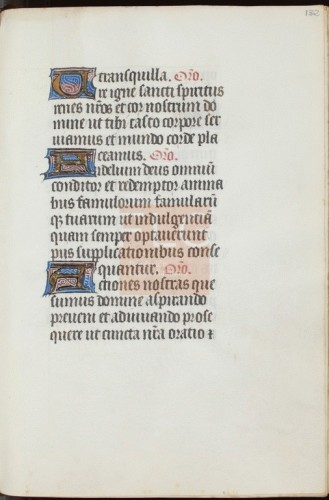 132
et transquilla. Oro.
Ure igne sancti spiritus
renes nr̄os et cor nostrum do
mine ut tibi casto corpore ser
uiamus et mundo corde pla
ceamus. Oro.
Fidelium deus omniū
conditor et redemptor anima
bus famulorum famularū
qꝫ tuarum ut indulgentiā
quam semper optauerunt
piis supplicationibus conse
quantur. Oro.
Actiones nostras que
sumus domine aspirando
preueni et adiuuando prose
quere ut cuncta nr̄a oratio ⁊